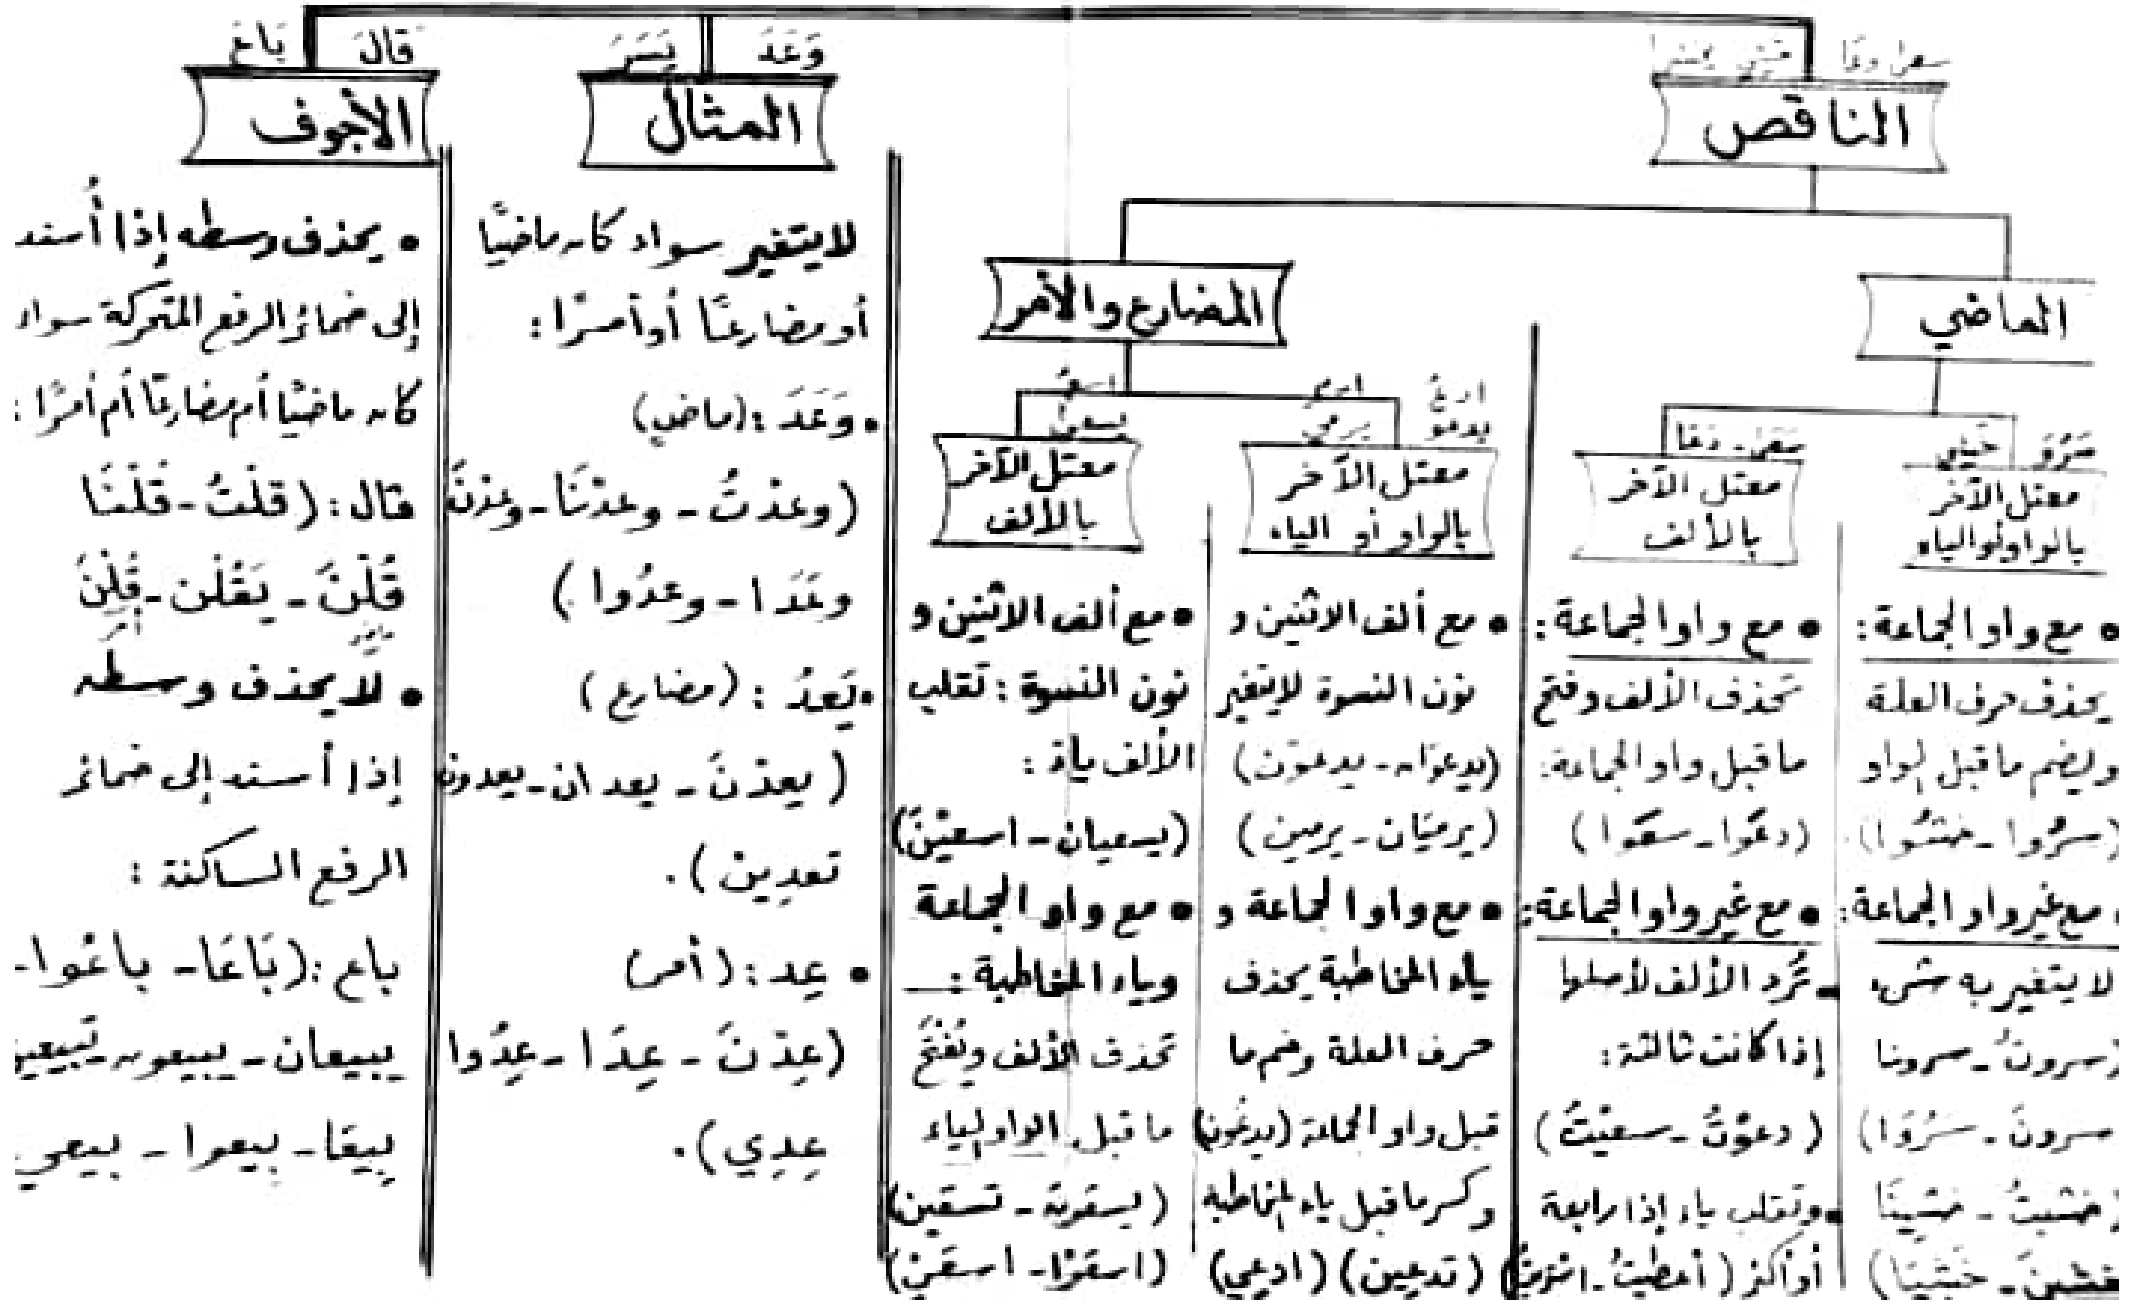 وَعَدَ يَسَرَ
قَالَ بَاعَ
الناقص
المثال
الأجوف
الماضي
المضارع والأمر
سَرُوَ خَشِيَ
معتل الآخر
بالواو أو الياء
• مع واو الجماعة:
يحذف حرف العلة
ويضم ما قبل الواو
(سَرُوا - خَشُوا).
• مع غير واو الجماعة:
لا يتغير به شيء
(سروتُ - سرونا
سرونَ - سَرُوَا)
(خشيتُ - خشينَا
خشينَ - خَشِيَا)
سعى - دعا
معتل الآخر
بالألف
• مع واو الجماعة:
تحذف الألف وفتح
ما قبل واو الجماعة:
(دعَوا - سعَوا)
• مع غير واو الجماعة:
• تُرد الألف لأصلها
إذا كانت ثالثة:
(دعوْتُ - سعيْتُ)
• وتقلب ياء إذا رابعة
أو أكثر (أعطيتُ - اشتريتُ)
ادعُ ارمِ
يدعو يرمي
معتل الآخر
بالواو أو الياء
• مع ألف الاثنين و
نون النسوة لا يتغير
(يدعوَان - يدعوْن)
(يرميَان - يرمين)
• مع واو الجماعة و
ياء المخاطبة يحذف
حرف العلة وضم ما
قبل واو الجماعة (يدعُون)
وكسر ما قبل ياء المخاطبة
(تدعِين) (ادعي)
اسعَ
يسعى
معتل الآخر
بالألف
• مع ألف الاثنين و
نون النسوة: تقلب
الألف ياءً:
(يسعيان - اسعيْنَ)
• مع واو الجماعة
وياء المخاطبة:
تحذف الألف ويُفْتَحُ
ما قبل الواو والياء
(يسعَونَ - تسعَين)
(اسعَوْا - اسعَيْ)
لا يتغير سواء كان ماضيًا
أو مضارعًا أو أمرًا:
• وَعَدَ: (ماضي)
(وعدْتُ - وعدْنَا - وعدْنَ
وعَدَا - وعدُوا)
• يَعِدُ: (مضارع)
(يعدْنَ - يعدان - يعدون
تعدِين).
• عِد: (أمر)
(عِدْنَ - عِدَا - عِدُوا
عِدِي).
• يحذف وسطه إذا أُسند
إلى ضمائر الرفع المتحركة سواء
كان ماضيًا أم مضارعًا أم أمرًا:
قال: (قلْتُ - قُلْنَا
قُلْنَ - يَقُلْن - قُلْنَ
• لا يحذف وسطه
إذا أسند إلى ضمائر
الرفع الساكنة:
باع: (بَاعَا - باعُوا -
يبيعان - يبيعون - تبيعين
بِيعَا - بيعوا - بيعي